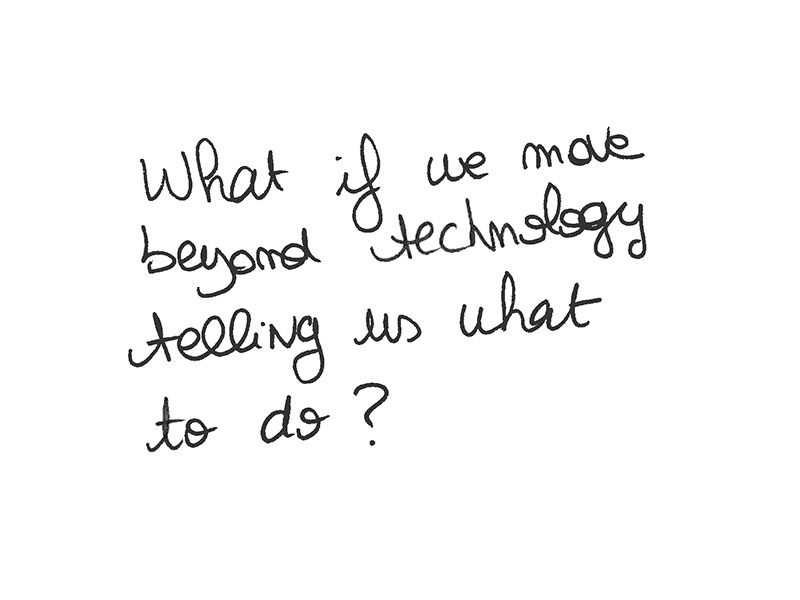 What if we move
beyond technology
telling us what
to do?